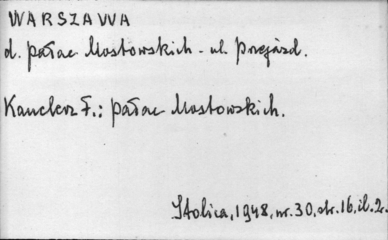 WARSZAWA
d. pałac Mostowskich - ul. Przejazd.
Kanclerz F.: pałac Mostowskich.
Stolica, 1948, nr. 30, str. 16, il. 2.